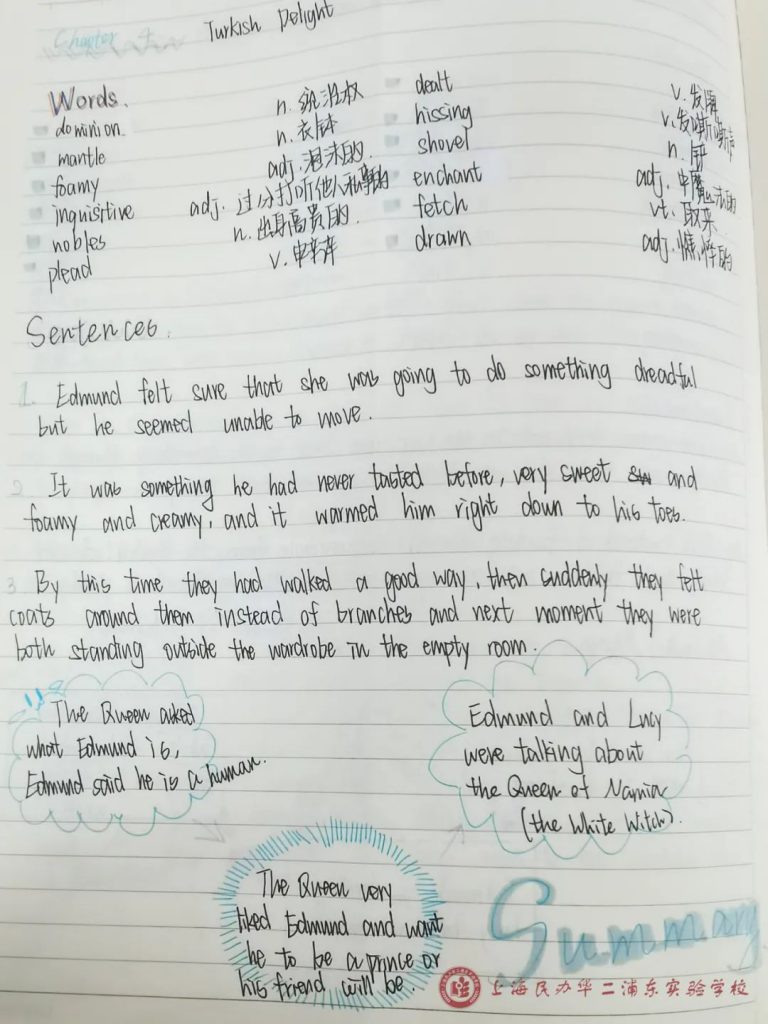 Chapter 4 Turkish Delight
Words.
dominion n. 统治权
mantle n. 衣钵
foamy adj. 泡沫的
inquisitive adj. 过分打听他人私事的
nobles n. 出身高贵的
plead v. 申辩
dealt v. 发牌
hissing v. 发嘶嘶声
shovel n. 铲
enchant adj. 中魔法的
fetch vt. 取来
drawn adj. 憔悴的
Sentences.
1. Edmund felt sure that she was going to do something dreadful
but he seemed unable to move.
2 It was something he had never tasted before, very sweet and
foamy and creamy, and it warmed him right down to his toes.
3 By this time they had walked a good way, then suddenly they felt
coats around them instead of branches and next moment they were
both standing outside the wardrobe in the empty room.
The Queen asked
what Edmund is,
Edmund said he is a human.
The Queen very
liked Edmund and want
he to be a prince or
his friend will be.
Edmund and Lucy
were talking about
the Queen of Narnia
(the White Witch).
Summary
上海民办华二浦东实验学校